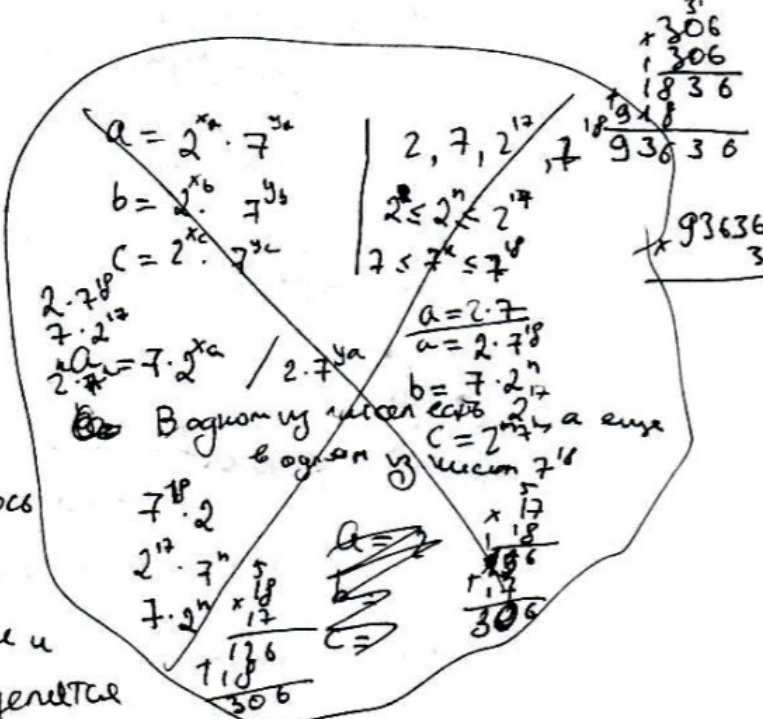 a = 2^{x_a} · 7^{y_a}
b = 2^{x_b} · 7^{y_b}
c = 2^{x_c} · 7^{y_c}
2 · 7^{18}
7 · 2^{17}
= 7 · 2^{x_a} / 2 · 7^{y_a}
2, 7, 2^{17}, 7^{18}
2 ≤ 2^n ≤ 2^{17}
7 ≤ 7^n ≤ 7^{18}
a = 2 · 7
a = 2 · 7^{18}
b = 7 · 2^n
В одном из чисел есть 2^{17}, а еще
в одном из чисел 7^{18}
7^{18} · 2
2^{17} · 7^n
7 · 2^n
5
× 18
17
126
+ 18
306
a =
b =
c =
5
× 17
18
+ 17
306
× 306
306
1836
+ 918
93636
× 93636
3
ось
е и
делится